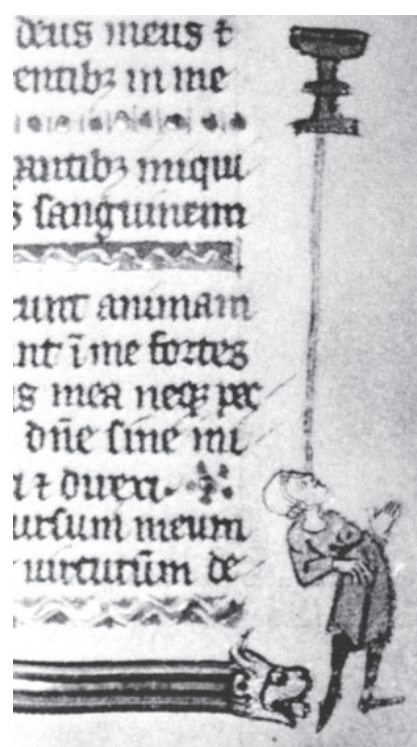 deus meus ⁊
entibꝫ in me
rantibꝫ iniqui
s sanguinum
runt animam
nt ī me fortes
s mea neqꝫ pec
dn̄e sine ini
i ⁊ direxi.
ursum meum
uirtutūm de